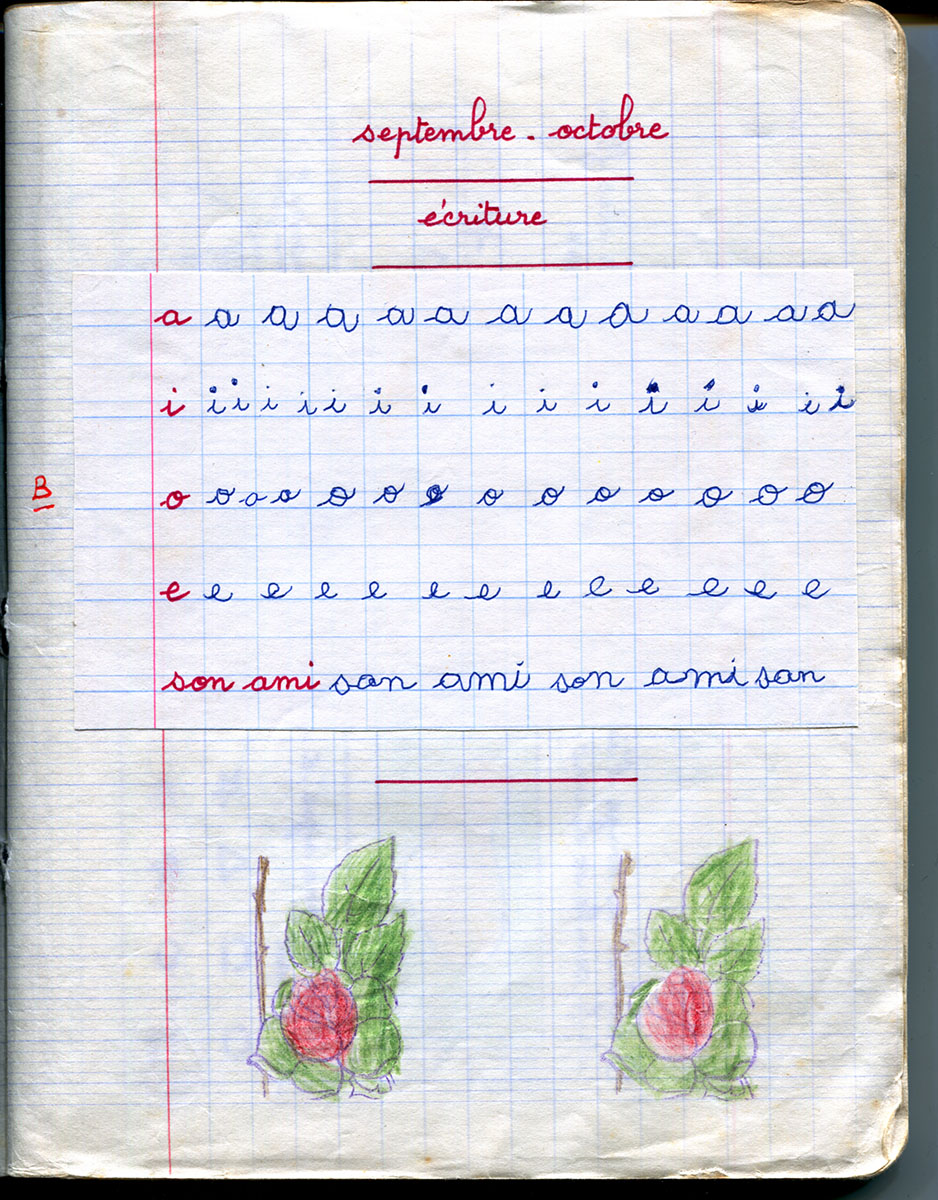 septembre - octobre
écriture
a a a a a a a a a a a a a
i i i i i i i i i i i i i i i i
B
o o o o o o o o o o o o o o
e e e e e e e e e e e e e
son ami son ami son ami son